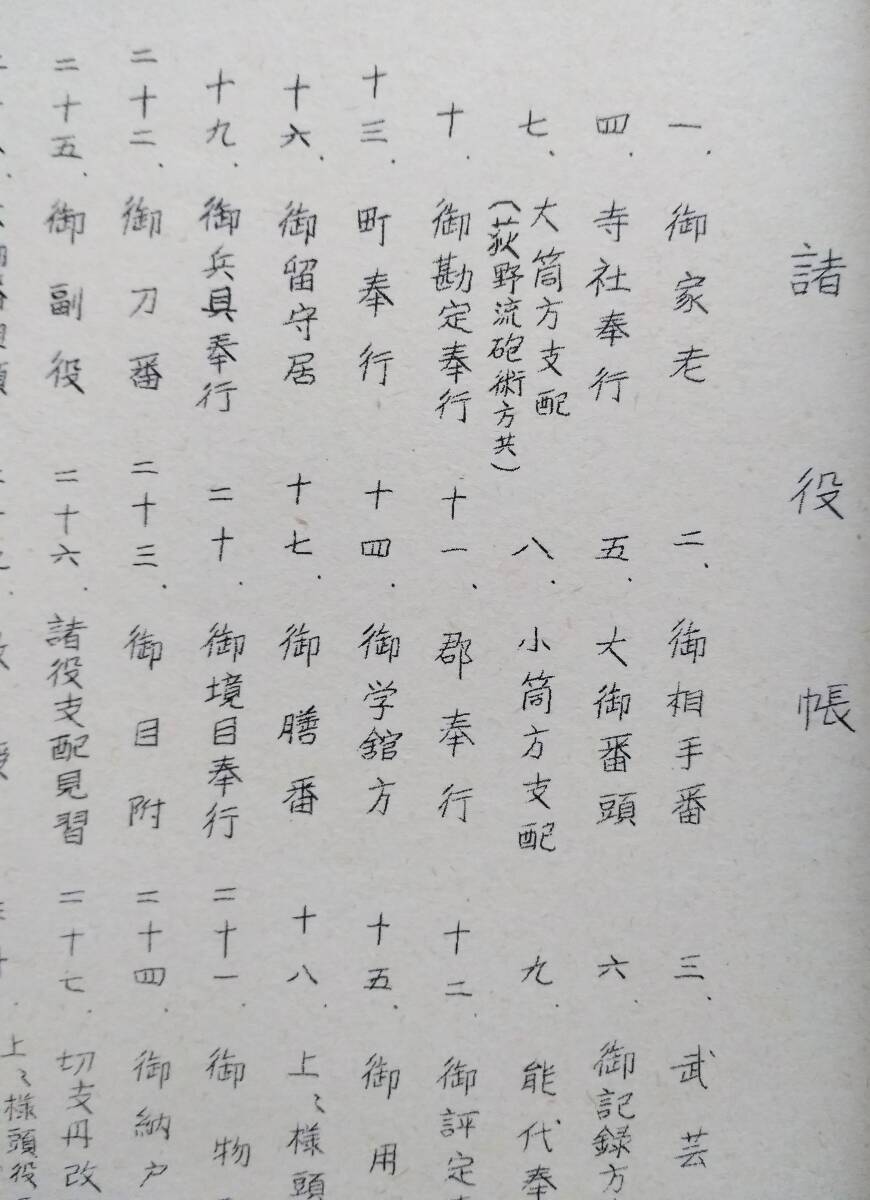 諸役帳
一、御家老
二、御相手番
三、武芸
四、寺社奉行
五、大御番頭
六、御記録方
七、大筒方支配
(荻野流砲術方共)
八、小筒方支配
九、能代奉
十、御勘定奉行
十一、郡奉行
十二、御評定
十三、町奉行
十四、御学館方
十五、御用
十六、御留守居
十七、御膳番
十八、上々様頭
十九、御兵具奉行
二十、御境目奉行
二十一、御物
二十二、御刀番
二十三、御目附
二十四、御納戸
二十五、御副役
二十六、諸役支配見習
二十七、切支丹改
上々様頭役